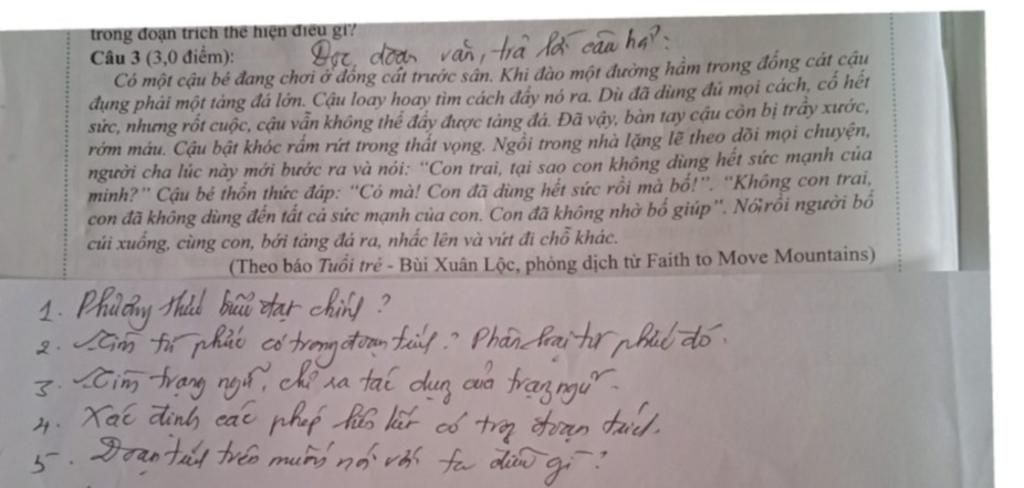 trong đoạn trích thể hiện điều gì?
Câu 3 (3,0 điểm): Đọc đoạn văn, trả lời câu hỏi:
Có một cậu bé đang chơi ở đống cát trước sân. Khi đào một đường hầm trong đống cát cậu
đụng phải một tảng đá lớn. Cậu loay hoay tìm cách đẩy nó ra. Dù đã dùng đủ mọi cách, cố hết
sức, nhưng rốt cuộc, cậu vẫn không thể đẩy được tảng đá. Đã vậy, bàn tay cậu còn bị trầy xước,
rớm máu. Cậu bật khóc rấm rứt trong thất vọng. Ngồi trong nhà lặng lẽ theo dõi mọi chuyện,
người cha lúc này mới bước ra và nói: “Con trai, tại sao con không dùng hết sức mạnh của
mình?” Cậu bé thổn thức đáp: “Có mà! Con đã dùng hết sức rồi mà bố!”. “Không con trai,
con đã không dùng đến tất cả sức mạnh của con. Con đã không nhờ bố giúp”. Nói rồi người bố
cúi xuống, cùng con, bới tảng đá ra, nhấc lên và vứt đi chỗ khác.
(Theo báo Tuổi trẻ - Bùi Xuân Lộc, phỏng dịch từ Faith to Move Mountains)
1. Phương thức biểu đạt chính?
2. Tìm từ phức có trong đoạn trích? Phân loại từ phức đó.
3. Tìm trạng ngữ, chỉ ra tác dụng của trạng ngữ.
4. Xác định các phép liên kết có trong đoạn trích.
5. Đoạn trích trên muốn nói với ta điều gì?